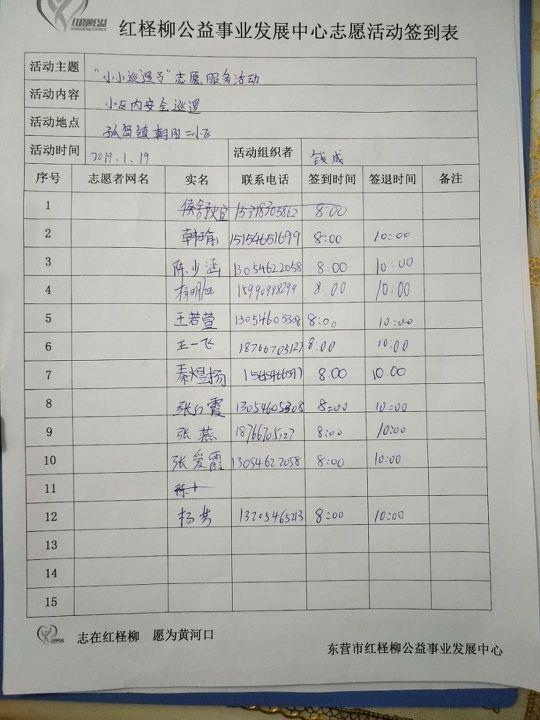 红柽柳公益事业发展中心志愿活动签到表
活动主题 "小小巡逻员"志愿服务活动
活动内容 小区内安全巡逻
活动地点 孤岛镇朝阳二小区
活动时间 2019.1.19 活动组织者 钱成
序号 志愿者网名 实名 联系电话 签到时间 签退时间 备注
1 8:00
2 韩瑜 15154651699 8:00 10:00
3 陈少涵 13054622058 8:00 10:00
4 杨明 15990998299 8:00 10:00
5 王若萱 13054605308 8:00 10:00
6 王一飞 18766705127 8:00 10:00
7 秦煜扬 8:00 10:00
8 张 霞 13054605308 8:00 10:00
9 张燕 18766705127 8:00 10:00
10 张爱霞 13054622058 8:00 10:00
11
12 杨 13205465213 8:00 10:00
13
14
15
志在红柽柳 愿为黄河口
东营市红柽柳公益事业发展中心